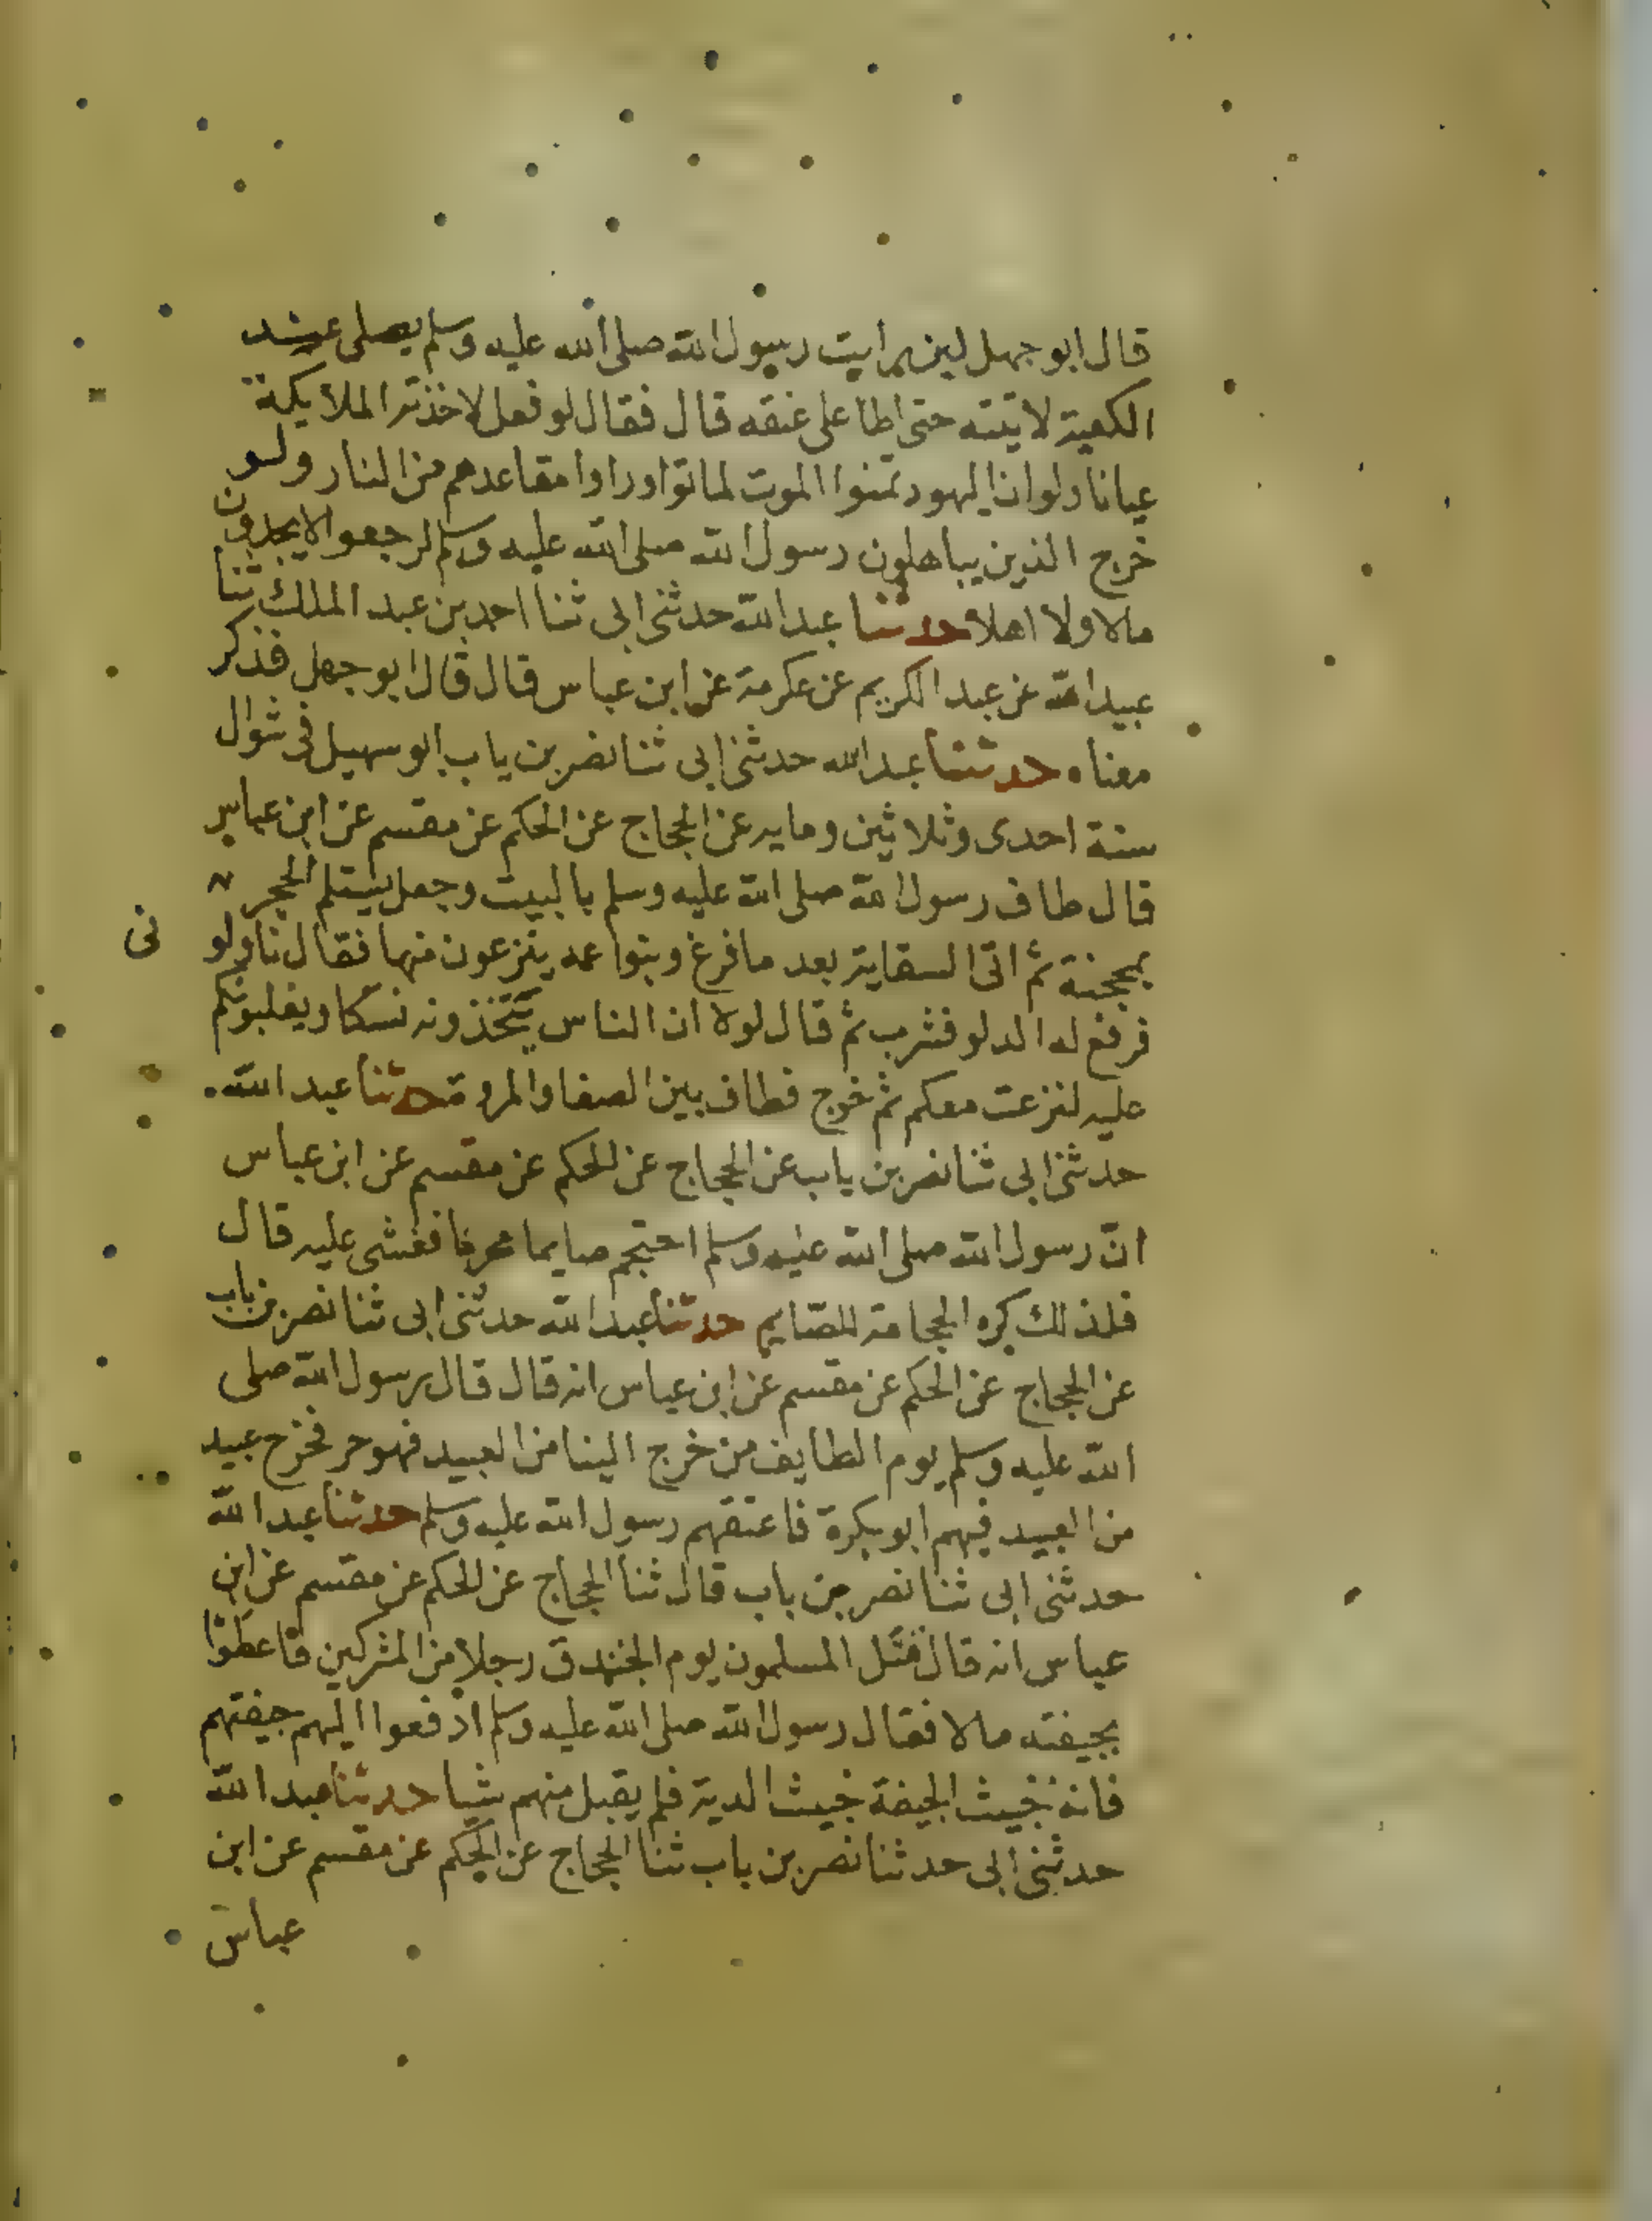 قال ابو جهل لين رايت رسول الله صلى الله عليه وسلم يصلى عند
الكعبة لاتيته حتى اطا على عنقه قال فقال لو فعل لاخذته الملايكة
عيانا ولو ان اليهود تمنوا الموت لماتوا وراوا مقاعدهم من النار ولو
خرج الذين يباهلون رسول الله صلى الله عليه وسلم لرجعوا لا يجدون
مالا ولا اهلا حدثنا عبد الله حدثنى ابى ثنا احمد بن عبد الملك ثنا
عبيد الله عن عبد الكريم عن عكرمة عن ابن عباس قال قال ابو جهل فذكر
معناه حدثنا عبد الله حدثنى ابى ثنا نصر بن ياب ابو سهيل فى شوال
سنة احدى وثلاثين ومايه عن الحجاج عن الحكم عن مقسم عن ابن عباس
قال طاف رسول الله صلى الله عليه وسلم بالبيت وجعل يستلم الحجر
بمحجنة ثم اتى السقاية بعد ما فرغ وبنوا عمه ينزعون منها فقال ناولو
نى
فرفع له الدلو فشرب ثم قال لولا ان الناس يتخذونه نسكا ويغلبونكم
عليه لنزعت معكم ثم خرج فطاف بين الصفا والمروة حدثنا عبد الله
حدثنى ابى ثنا نصر بن ياب عن الحجاج عن الحكم عن مقسم عن ابن عباس
ان رسول الله صلى الله عليه وسلم احتجم صايما محرما فغشى عليه قال
فلذلك كره الحجامة للصّايم حدثنا عبد الله حدثنى ابى ثنا نصر بن باب
عن الحجاج عن الحكم عن مقسم عن ابن عباس انه قال قال رسول الله صلى
الله عليه وسلم يوم الطايف من خرج الينا من العبيد فهو حر فخرج عبيد
من العبيد فيهم ابو بكرة فاعتقهم رسول الله عليه وسلم حدثنا عبد الله
حدثنى ابى ثنا نصر بن باب قال ثنا الحجاج عن الحكم عن مقسم عن ابن
عباس انه قال قتل المسلمون يوم الخندق رجلا من المشركين فاعطوا
بجيفته مالا فقال رسول الله صلى الله عليه وسلم ادفعوا اليهم جيفتهم
فانه خبيث الجيفة خبيث الدية فلم يقبل منهم شيا حدثنا عبد الله
حدثنى ابى حدثنا نصر بن باب ثنا الحجاج عن الحكم عن مقسم عن ابن
عباس